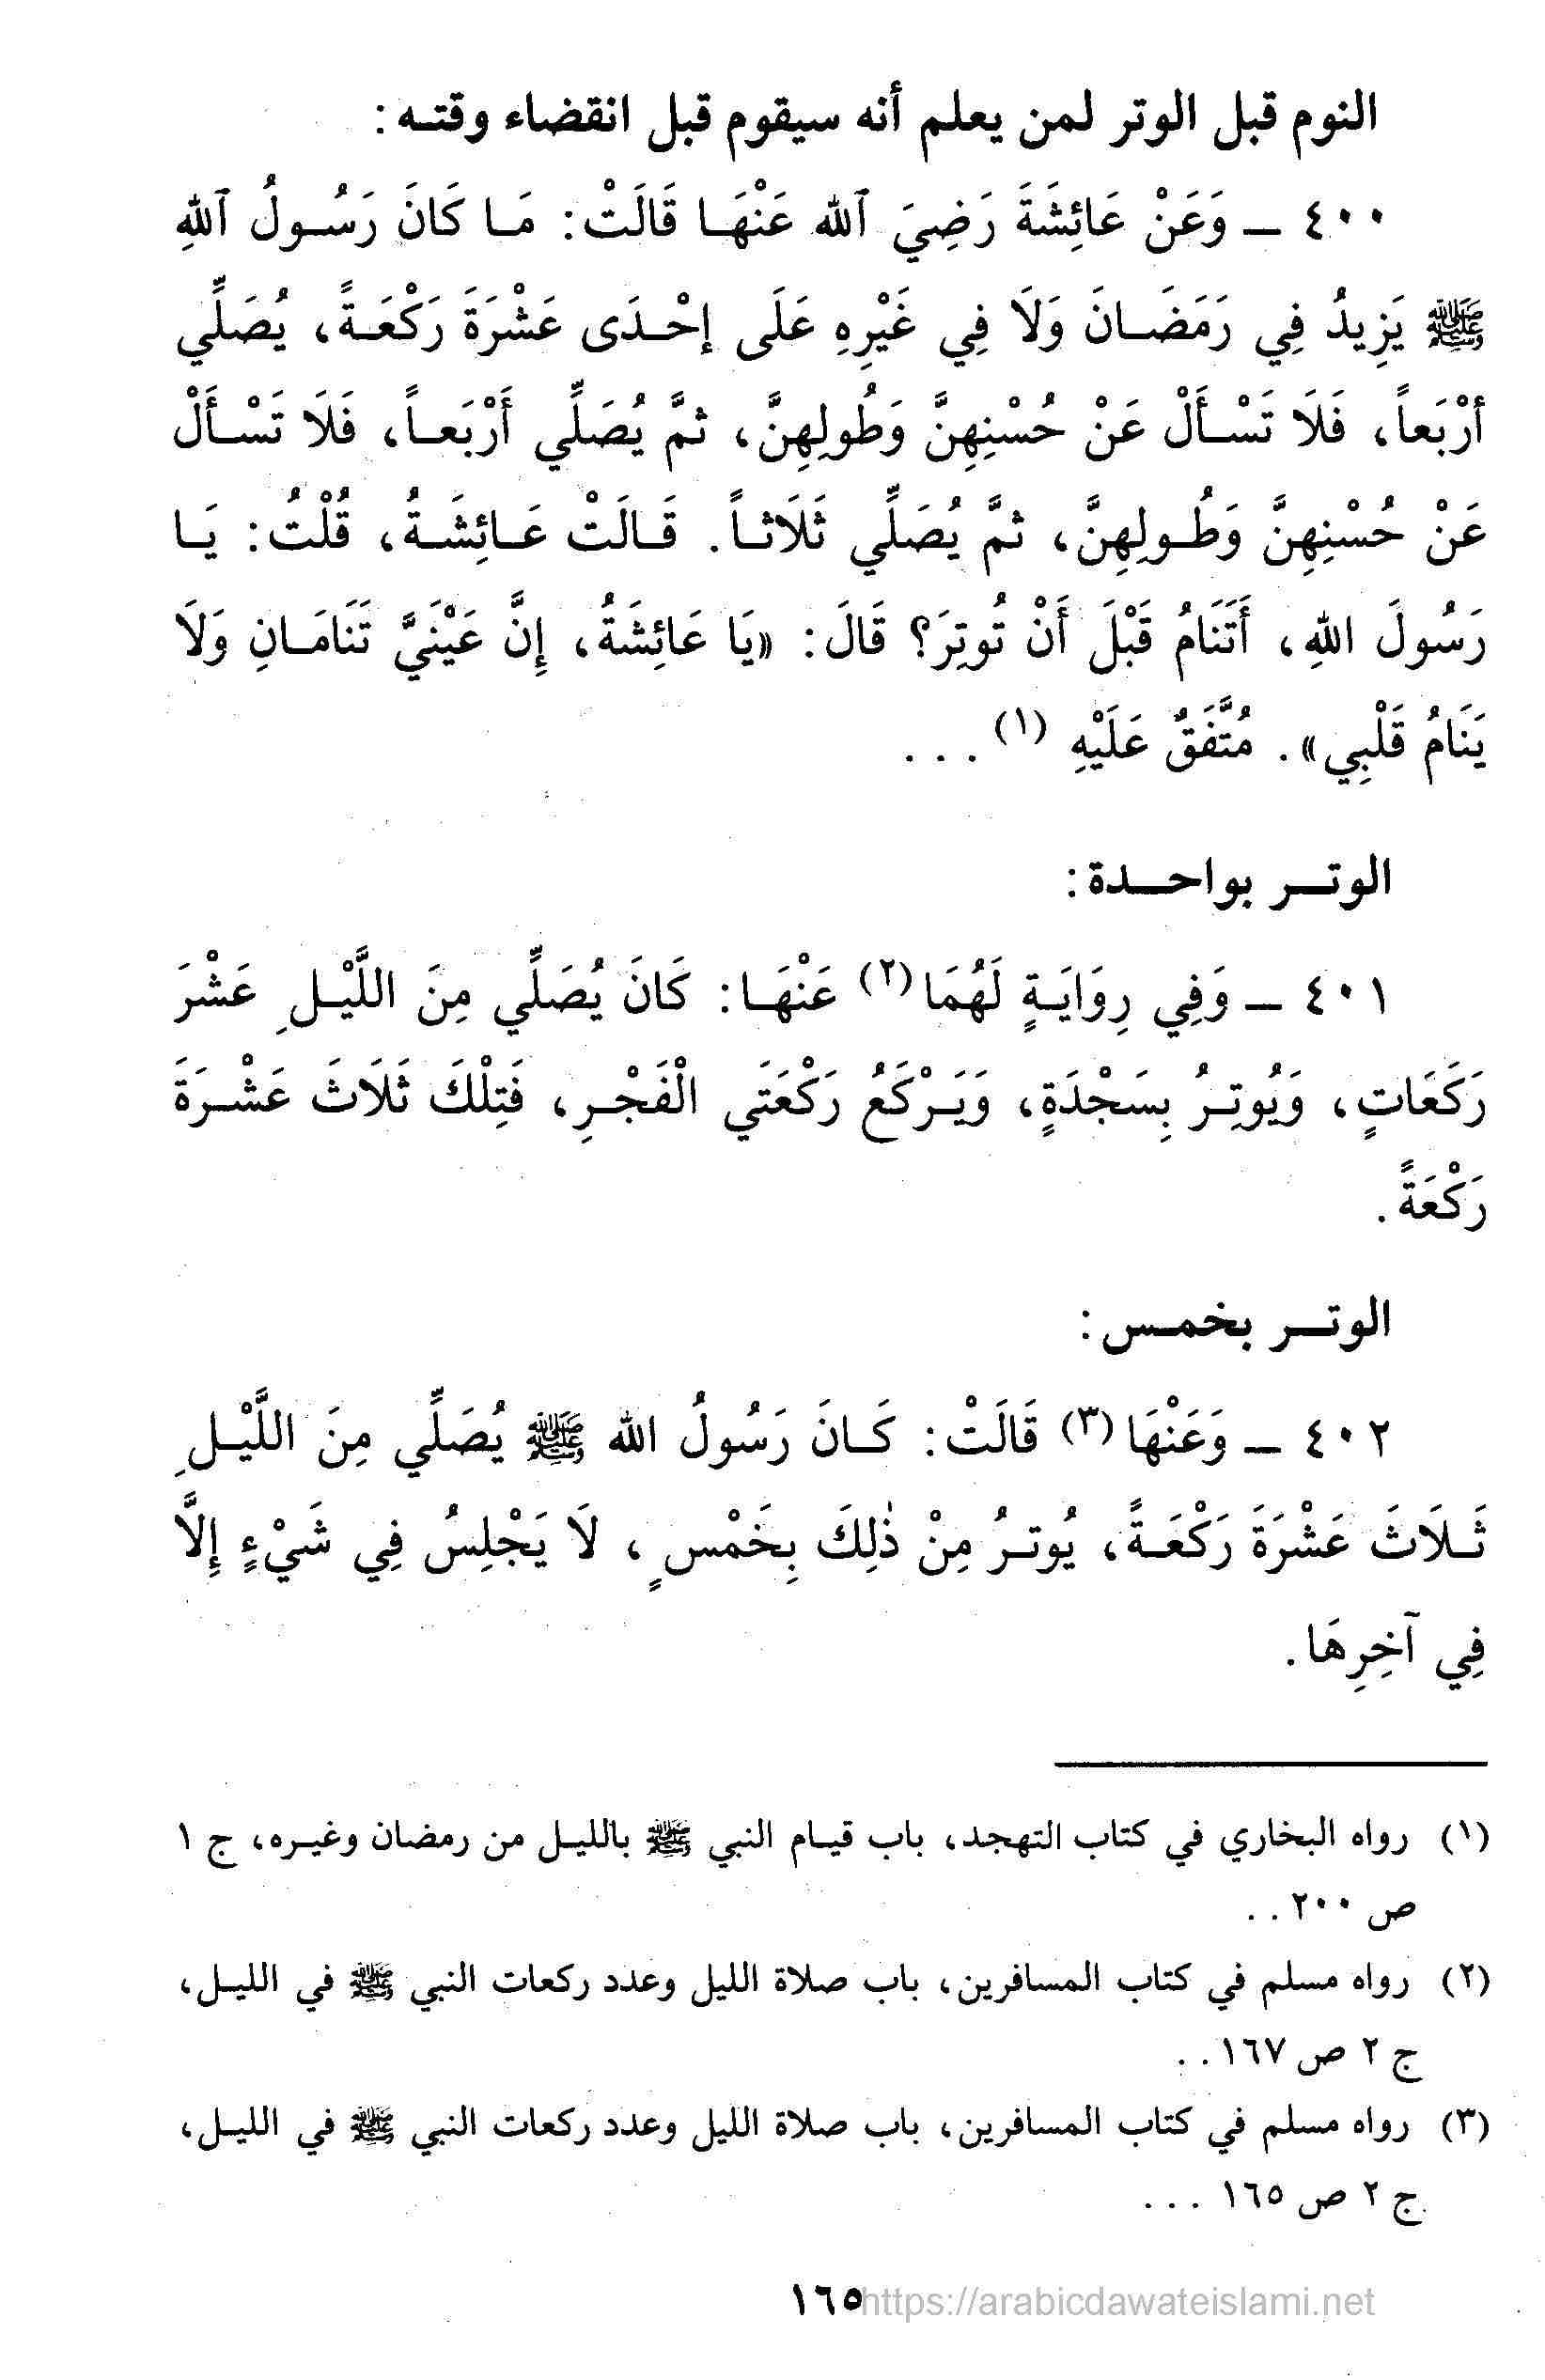 النوم قبل الوتر لمن يعلم أنه سيقوم قبل انقضاء وقتـه:
٤٠٠ ـ وَعَنْ عَائِشَةَ رَضِيَ ٱلله عَنْهَـا قَالَتْ: مَـا كَانَ رَسُـولُ ٱللهِ
ﷺ يَزِيدُ فِي رَمَضَـانَ وَلَا فِي غَيْرِهِ عَلَى إحْـدَى عَشْرَةَ رَكْعَـةً، يُصَلِّي
أرْبَعاً، فَلَا تَسْـأَلْ عَنْ حُسْنِهِنَّ وَطُولِهِنَّ، ثمَّ يُصَلِّي أَرْبَعـاً، فَلَا تَسْـأَلْ
عَنْ حُسْنِهِنَّ وَطُـولِهِنَّ، ثمَّ يُصَلِّي ثَلَاثـاً. قَـالَتْ عَـائِشَـةُ، قُلْتُ: يَـا
رَسُولَ اللهِ، أَتَنَامُ قَبْلَ أَنْ تُوتِرَ؟ قَالَ: «يَا عَائِشَةُ، إِنَّ عَيْنَيَّ تَنَامَـانِ وَلَا
يَنَامُ قَلْبِي». مُتَّفَقٌ عَلَيْهِ (١) ...
الوتــر بواحــدة:
٤٠١ ـ وَفِي رِوَايَـةٍ لَهُمَا (٢) عَنْهَـا: كَانَ يُصَلِّي مِنَ اللَّيْـلِ عَشْرَ
رَكَعَاتٍ، وَيُوتِـرُ بِسَجْدَةٍ، وَيَـرْكَعُ رَكْعَتَي الْفَجْـرِ، فَتِلْكَ ثَلَاثَ عَشْـرَةَ
رَكْعَةً.
الوتــر بخمـس:
٤٠٢ ـ وَعَنْهَا (٣) قَالَتْ: كَـانَ رَسُولُ الله ﷺ يُصَلِّي مِنَ اللَّيْـلِ
ثَـلَاثَ عَشْرَةَ رَكْعَـةً، يُوتـرُ مِنْ ذٰلِكَ بِخَمْسٍ، لَا يَجْلِسُ فِي شَيْءٍ إِلَّا
فِي آخِرِهَا.
(١) رواه البخاري في كتاب التهجد، باب قيـام النبي ﷺ بالليـل من رمضان وغيـره، ج ١
ص ٢٠٠ ..
(٢) رواه مسلم في كتاب المسافرين، باب صلاة الليل وعدد ركعات النبي ﷺ في الليـل،
ج ٢ ص ١٦٧ ..
(٣) رواه مسلم في كتاب المسافرين، باب صلاة الليل وعدد ركعات النبي ﷺ في الليـل،
ج ٢ ص ١٦٥ ...
١٦٥ https://arabicdawateislami.net